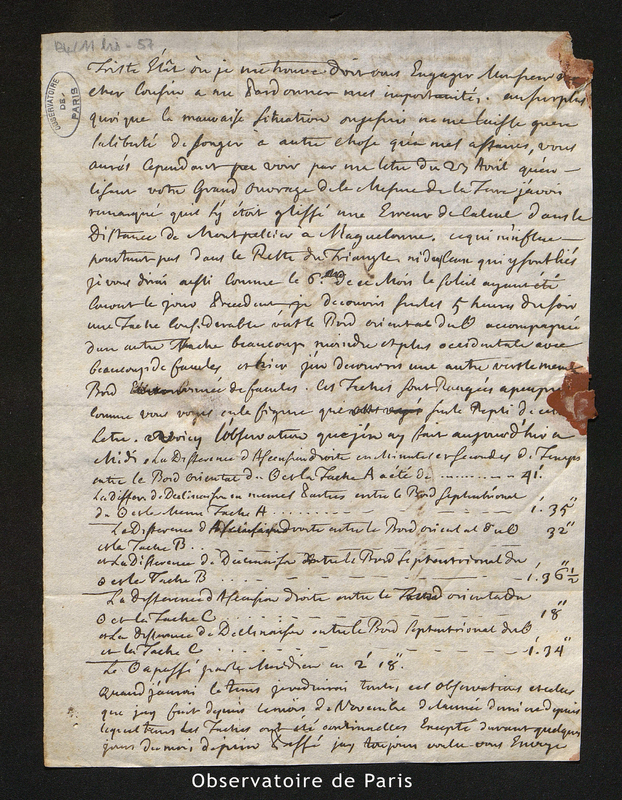 OBSERVATOIRE DE PARIS
Triste Etat où je me trouve doit vous Engager Monsieur
cher Cousin a me pardonner mes importunités. ausurplus
quoi que la mauvaise Situation ou je suis ne me laisse guere
la liberté de songer a autre chose qu'a mes affaires, vous
aurés Cependant peu voir par ma letre du 27 Avril qu'en
lisant votre Grand Ouvrage de la Mesure de la Terre j'avois
remarqué qu'il s'y étoit glissé une Erreur de Calcul dans la
Distance de Montpellier a Maguelonne. ce qui n'influe
pourtant pas dans le Reste du Triangle ni de Ceux qui y sont liés
je vous dirai aussi comme le 6.me de ce Mois le soleil ayant été
Couvert le jour Precedent je decouvris sur les 5 heures du soir
une Tache Considerable vers le Bord oriental du ʘ accompagnée
d'une autre Tache beaucoup moindre et plus occidentale avec
beaucoup de facules et hier j'en decouvris une autre vers le meme
Bord de facules. Ces Taches sont Rangées a peu prés
comme vous voyes en la figure que sur le Repli de cette
Letre. Voicy l'observation que j'en ay fait aujourd'hui a
Midi. La Difference d'Ascension droite en Minutes et Secondes de Temps
entre le Bord oriental du ʘ et la Tache A a été de 41"
La differ. de Declinaison en memes entre le Bord Septentrional
du ʘ et la meme Tache A 1'. 35"
La Difference d'Ascension droite entre le Bord oriental du ʘ 32"
et la Tache B
et La Difference de Declinaison entre le Bord Septentrional du
ʘ et la Tache B 1'. 36"½
La difference d'Ascension droite entre le Bord oriental du
ʘ et la Tache C 18"
et La difference de Declinaison entre le Bord Septentrional du ʘ
et la Tache C 1'. 34"
Le ʘ a passé par le Meridien en 2' 18".
Quand j'aurai le tems je reduirai toutes ces observations et celles
que j'ay fait depuis le mois de Novembre de l'année derniere depuis
lequel tems les Taches ont été continuelles Excepté durant quelques
jours du mois dernier passé jay toujours voulu vous Envoyer
Observatoire de Paris